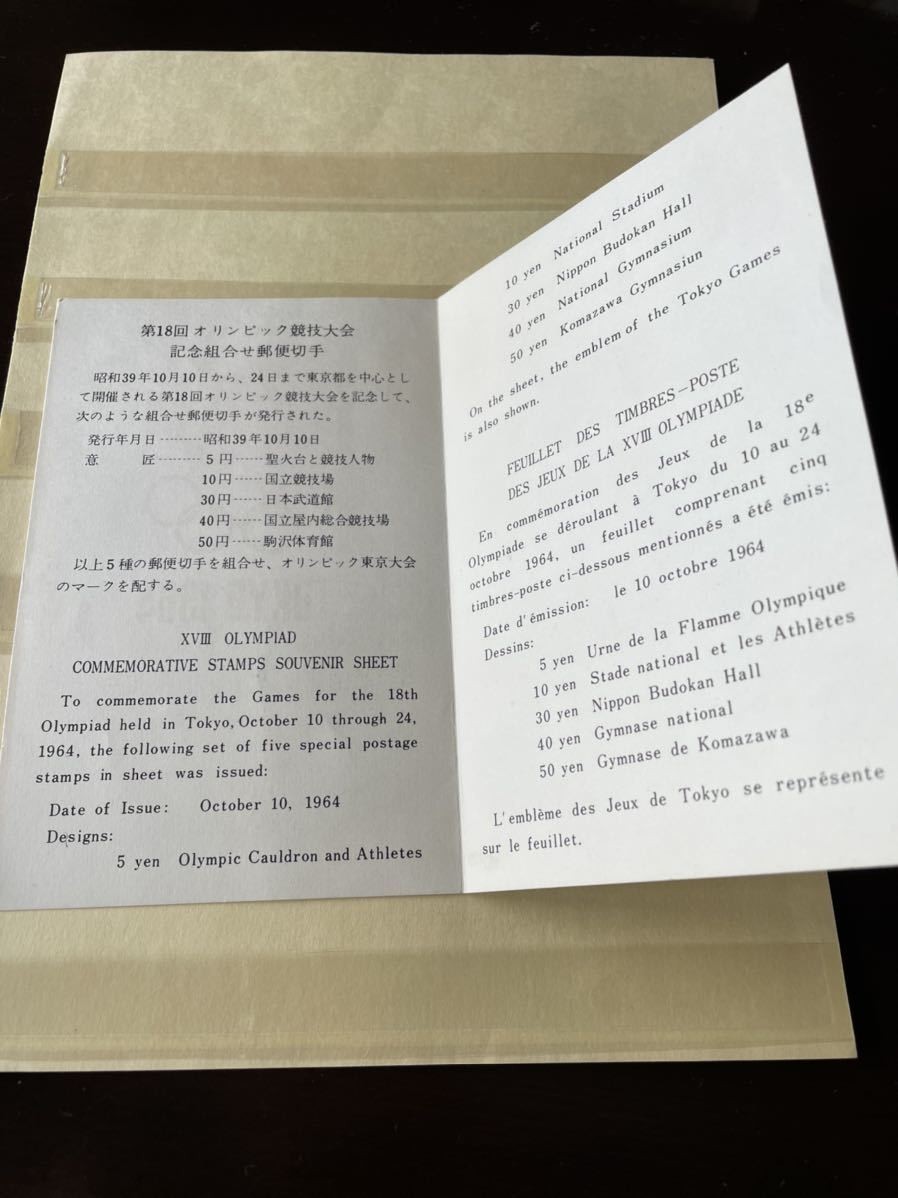 第18回オリンピック競技大会
記念組合せ郵便切手
昭和39年10月10日から、24日まで東京都を中心とし
て開催される第18回オリンピック競技大会を記念して、
次のような組合せ郵便切手が発行された。
発行年月日--------昭和39年10月10日
意　　匠---------5円------聖火台と競技人物
10円------国立競技場
30円------日本武道館
40円------国立屋内総合競技場
50円------駒沢体育館
以上5種の郵便切手を組合せ、オリンピック東京大会
のマークを配する。
XVIII OLYMPIAD
COMMEMORATIVE STAMPS SOUVENIR SHEET
To commemorate the Games for the 18th
Olympiad held in Tokyo, October 10 through 24,
1964, the following set of five special postage
stamps in sheet was issued:
Date of Issue: October 10, 1964
Designs:
5 yen Olympic Cauldron and Athletes
10 yen National Stadium
30 yen Nippon Budokan Hall
40 yen National Gymnasium
50 yen Komazawa Gymnasiun
On the sheet, the emblem of the Tokyo Games
is also shown.
FEUILLET DES TIMBRES-POSTE
DES JEUX DE LA XVIII OLYMPIADE
En commémoration des Jeux de la 18e
Olympiade se déroulant à Tokyo du 10 au 24
octobre 1964, un feuillet comprenant cinq
timbres-poste ci-dessous mentionnés a été émis:
Date d'émission: le 10 octobre 1964
Dessins:
5 yen Urne de la Flamme Olympique
10 yen Stade national et les Athlètes
30 yen Nippon Budokan Hall
40 yen Gymnase national
50 yen Gymnase de Komazawa
L'emblème des Jeux de Tokyo se représente
sur le feuillet.